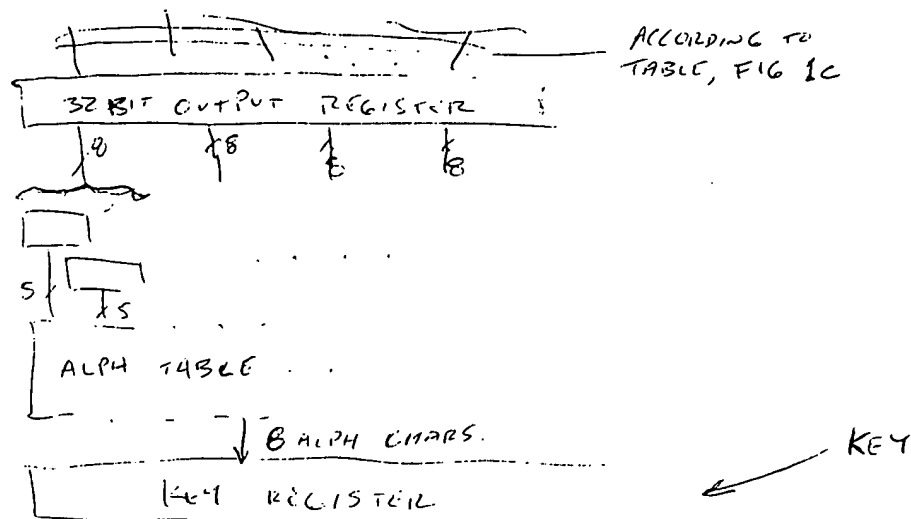 ACCORDING TO
TABLE, FIG 1C
32 BIT OUTPUT REGISTER
8 8 8 8
5
5
ALPH TABLE
8 ALPH CHARS.
KEY
KEY REGISTER